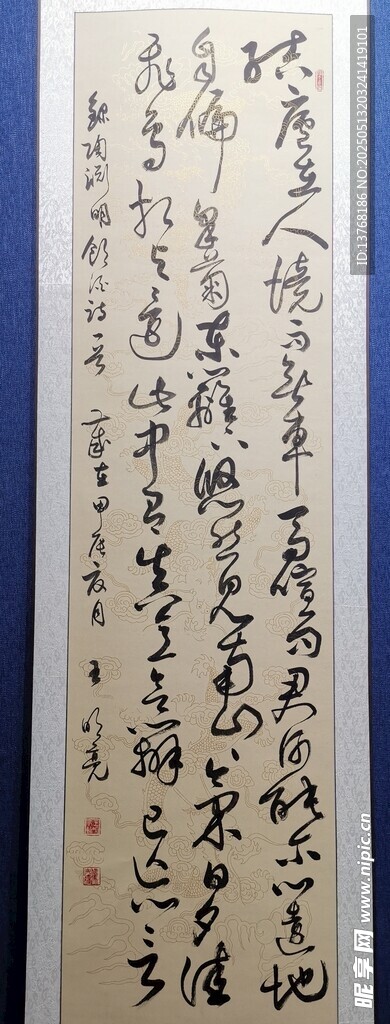 結廬在人境而無車馬喧問君何能尔心遠地
自偏采菊東籬下悠然見南山山氣日夕佳
飛鳥相與還此中有真意欲辨已忘言
錄陶淵明飲酒詩一首 歲在甲辰夏月 王明亮
ID:13768186 NO:20250513203241419101
昵享网 www.nipic.cn